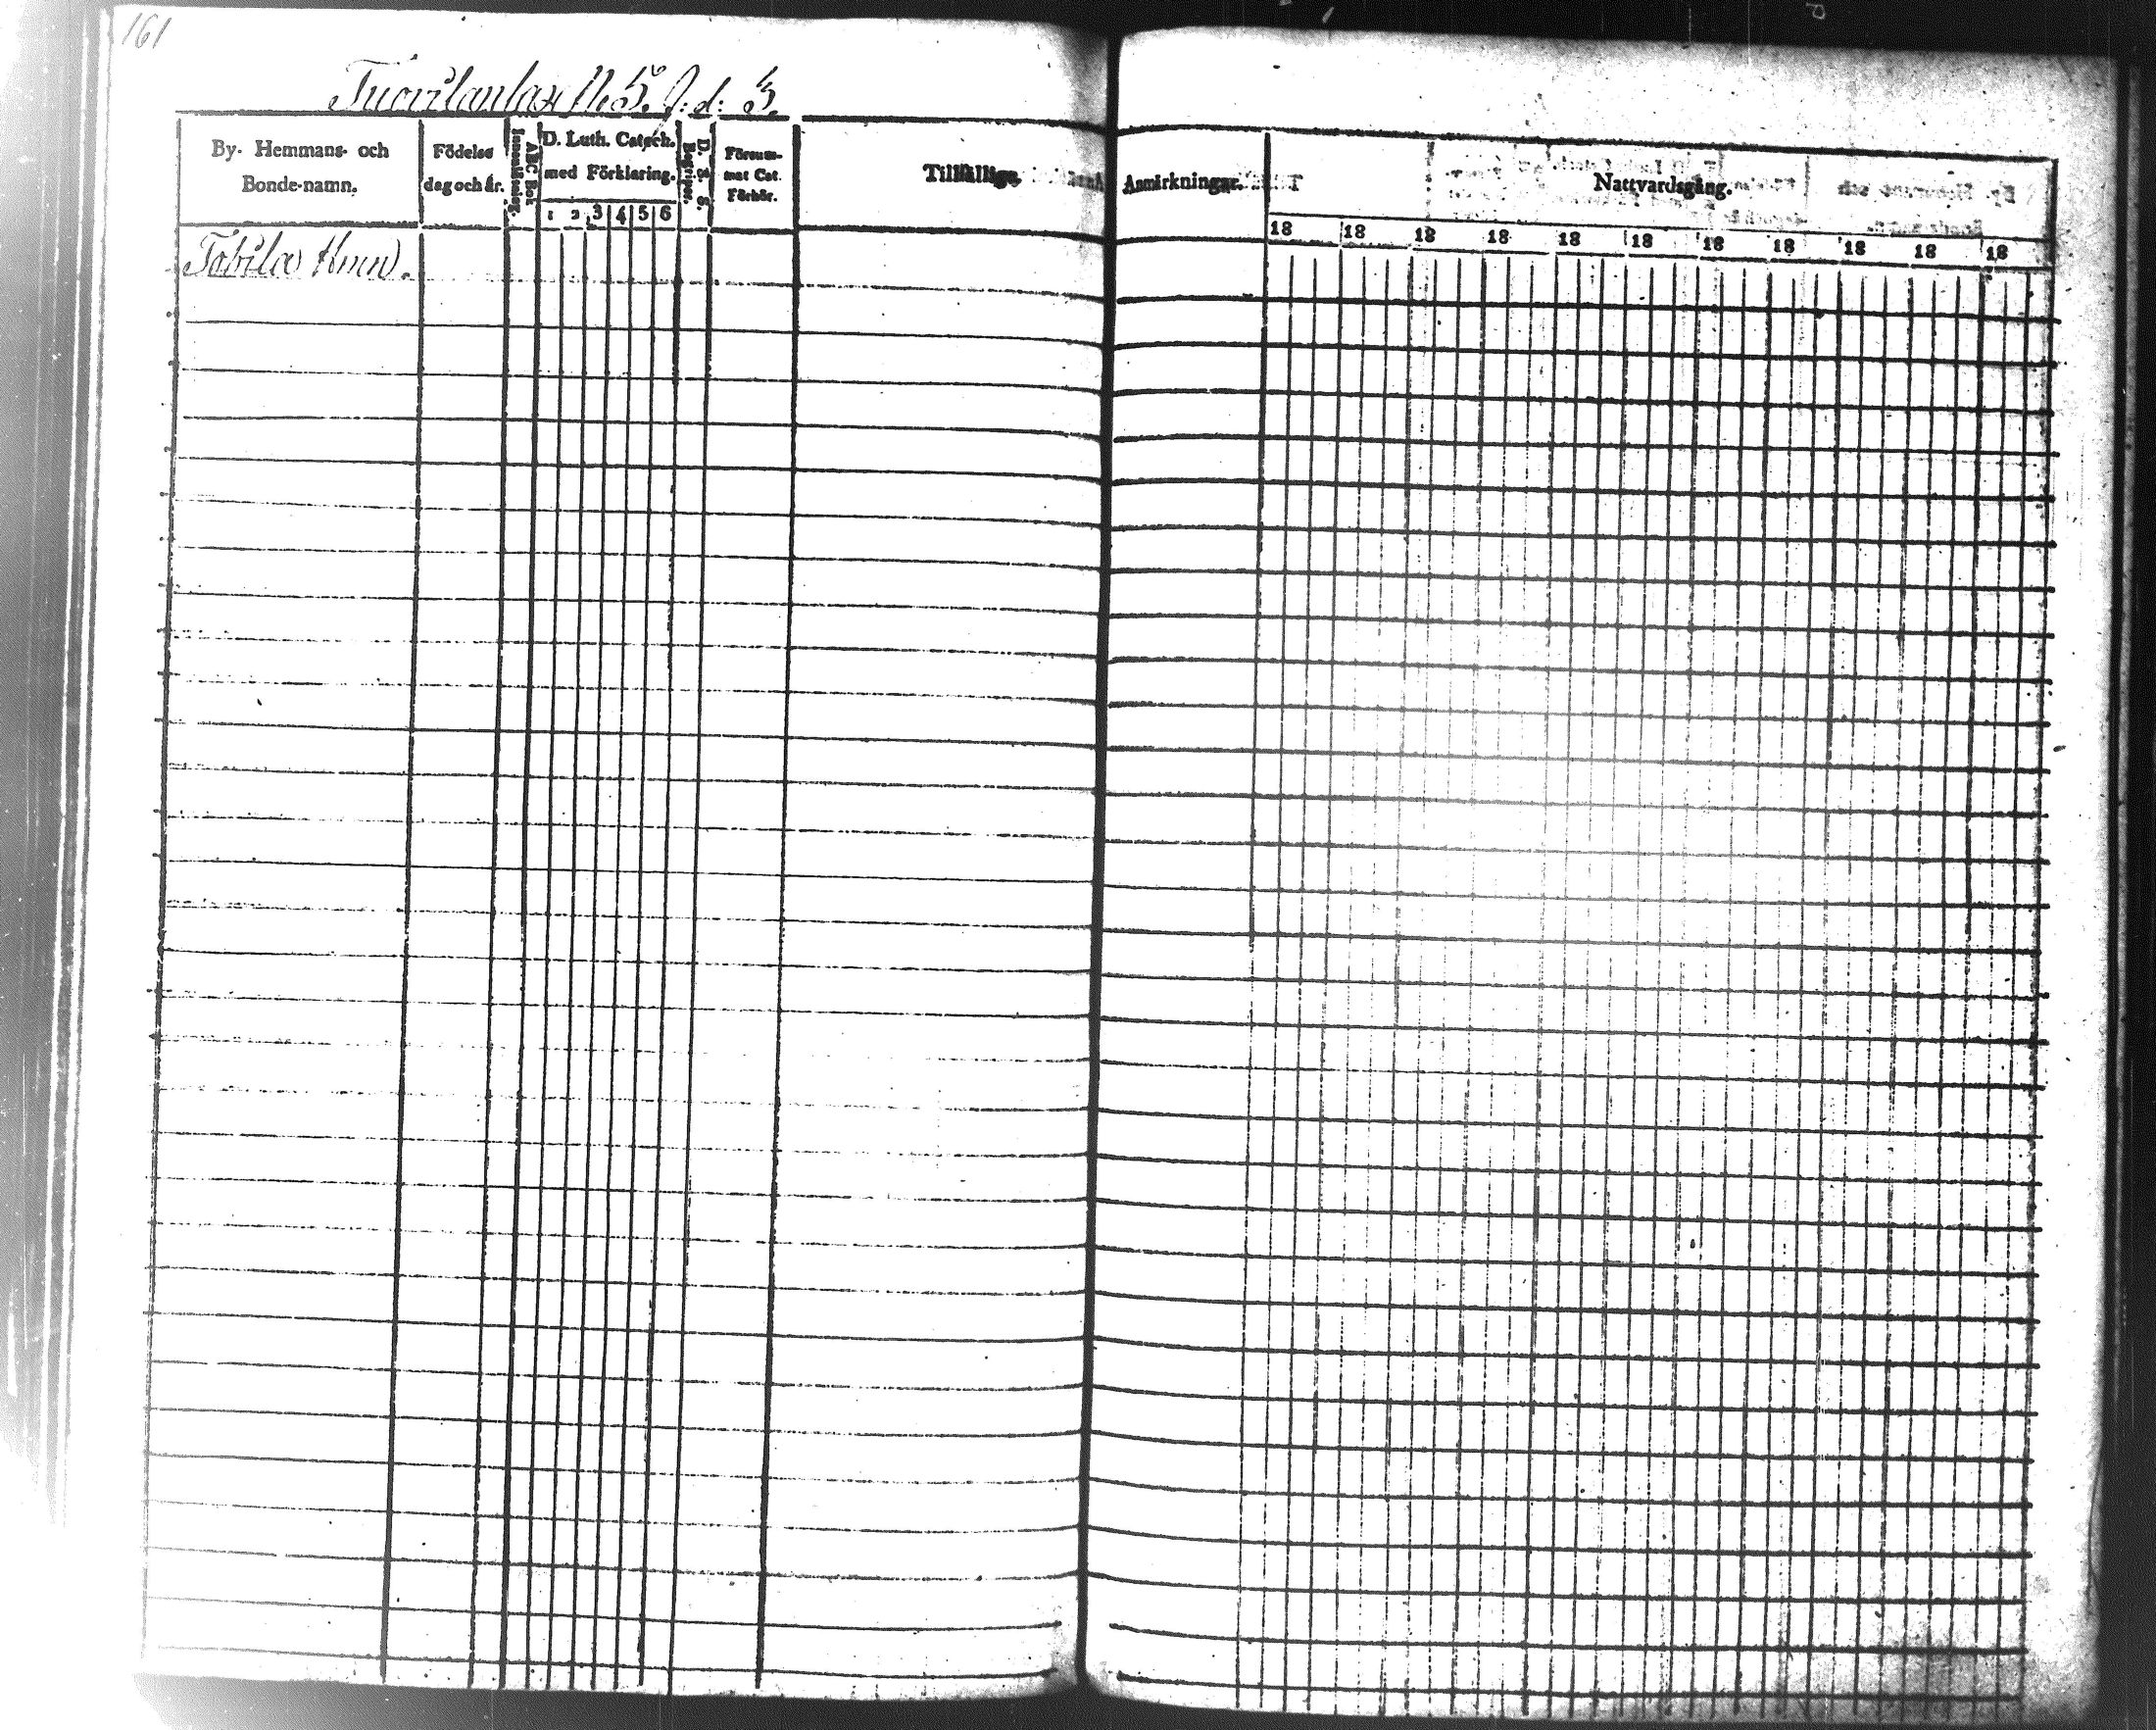 161
Tuovilanlax N. 5. J: d: 3.
By- Hemmans- och Bonde-namn.
Födelse dag och år.
Innanläsning.
ABC Bok
D. Luth. Catech. med Förklaring.
1 2 3 4 5 6
D. S. S. Begripes.
Försummat Cat. Förhör.
Tillfällige
Anmärkningar.
Nattvardsgång.
18 18 18 18 18 18 18 18 18 18 18
Tobila Hmn.